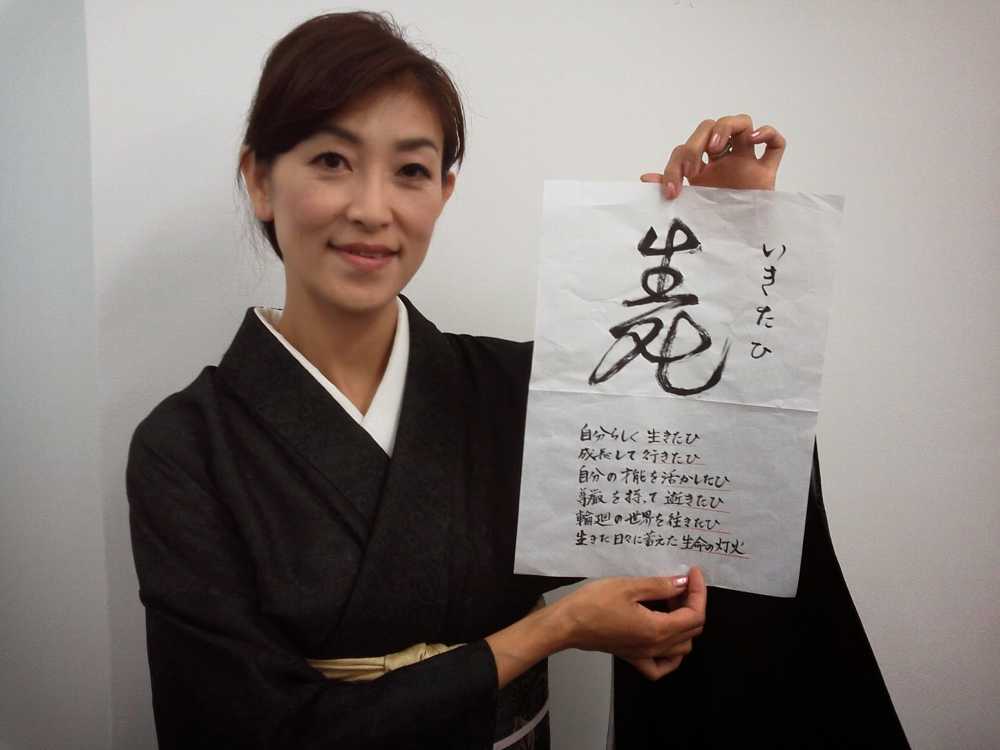 いきたひ
生死
自分らしく 生きたひ
成長して 行きたひ
自分の才能を活かしたひ
尊厳を持って 逝きたひ
輪廻の世界を往きたひ
生きた日々に蓄えた生命の灯火